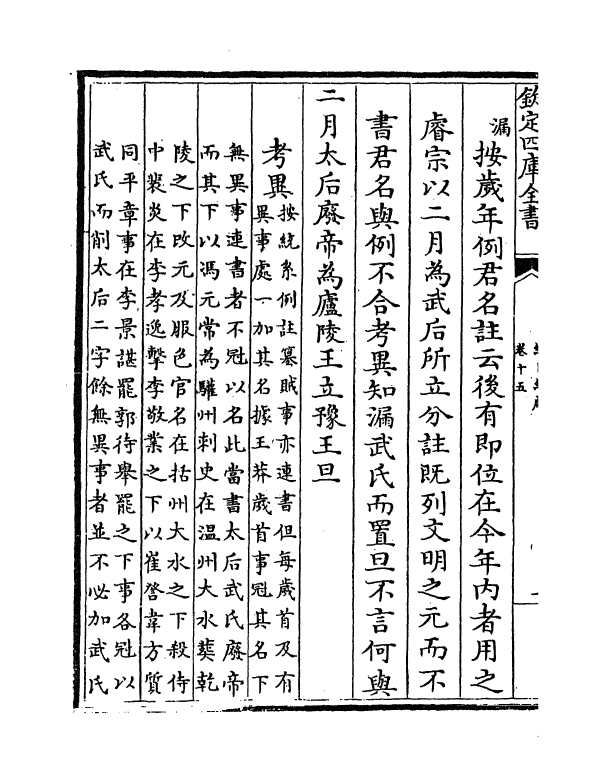 欽定四庫全書
卷十五
漏
按歲年例君名註云後有即位在今年內者用之
睿宗以二月為武后所立分註既列文明之元而不
書君名與例不合考異知漏武氏而置旦不言何與
二月太后廢帝為廬陵王立豫王旦
考異
按統系例註簒賊事亦連書但每歲首及有
異事處一加其名據王莽歲首事冠其名下
無異事連書者不冠以名此當書太后武氏廢帝
而其下以馮元常為驩州刺史在温州大水葬乾
陵之下改元及服色官名在括州大水之下殺侍
中裴炎在李孝逸擊李敬業之下以崔詧韋方質
同平章事在李景諶罷郭待舉罷之下事各冠以
武氏而削太后二字餘無異事者並不必加武氏